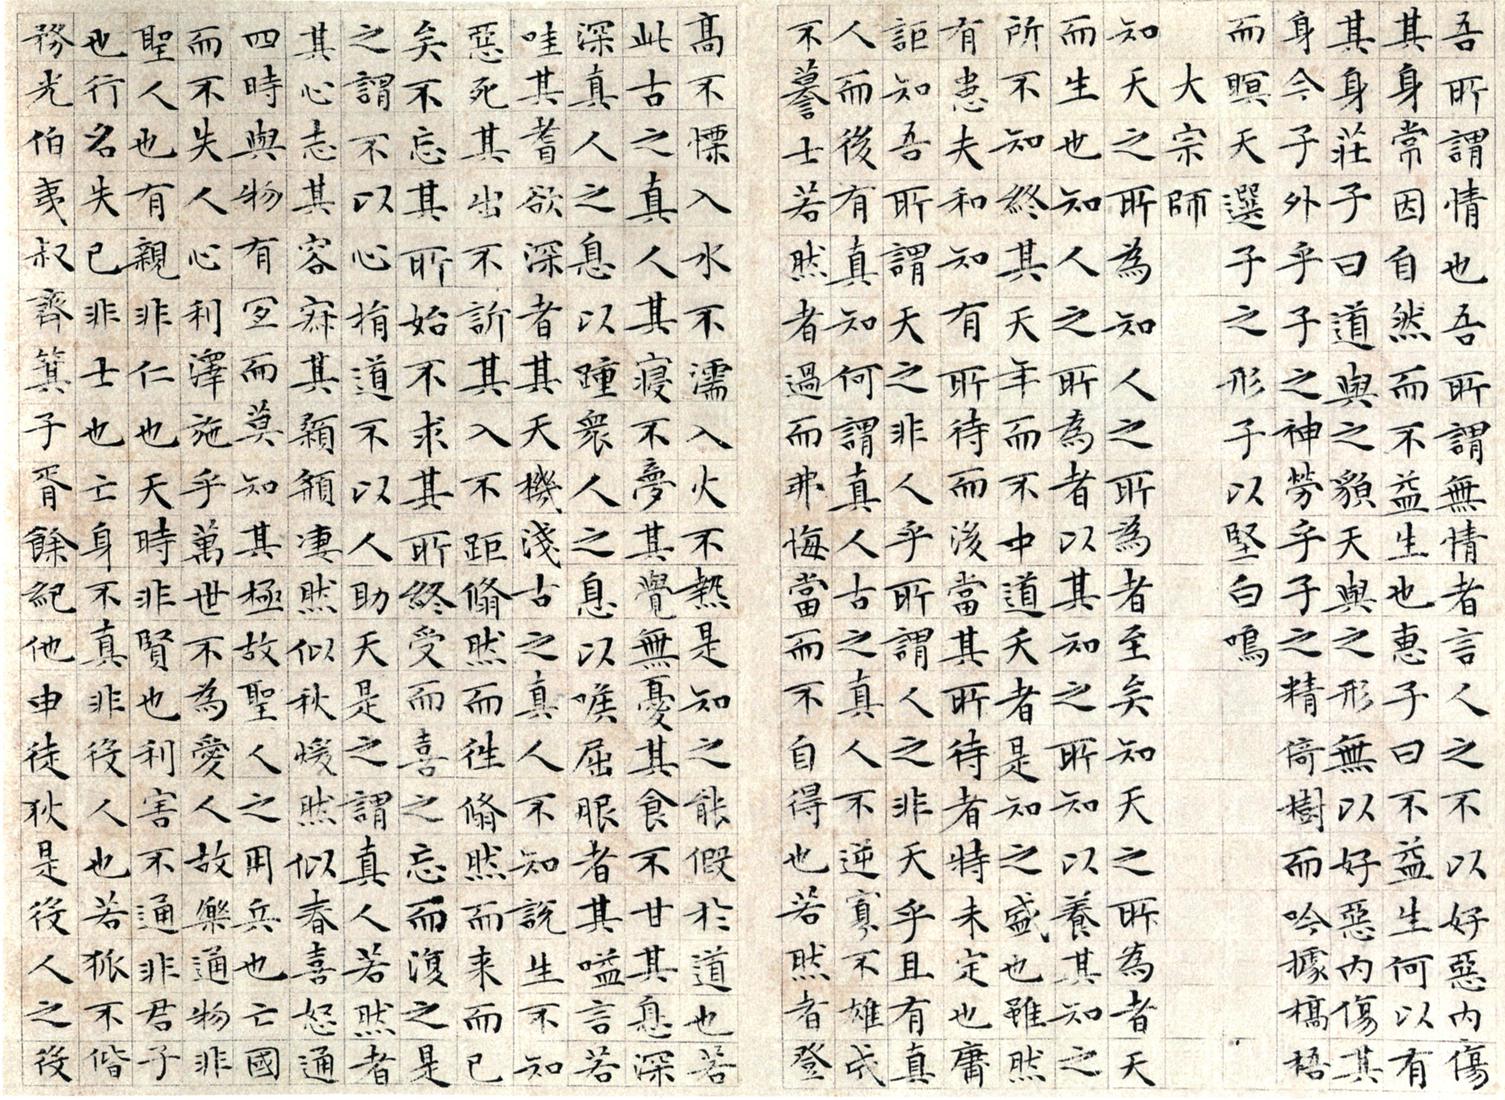 吾所謂情也吾所謂無情者言人之不以好惡內傷
其身常因自然而不益生也惠子曰不益生何以有
其身莊子曰道與之貌天與之形無以好惡內傷其
身今子外乎子之神勞乎子之精倚樹而吟據槁梧
而瞑天選子之形子以堅白鳴
大宗師
知天之所為知人之所為者至矣知天之所為者天
而生也知人之所為者以其知之所知以養其知之
所不知終其天年而不中道夭者是知之盛也雖然
有患夫和知有所待而後當其所待者特未定也庸
詎知吾所謂天之非人乎所謂人之非天乎且有真
人而後有真知何謂真人古之真人不逆寡不雄成
不謩士若然者過而弗悔當而不自得也若然者登
高不慄入水不濡入火不熱是知之能假於道也若
此古之真人其寢不夢其覺無憂其食不甘其息深
深真人之息以踵眾人之息以喉屈服者其嗌言若
哇其耆欲深者其天機淺古之真人不知說生不知
惡死其出不訢其入不距翛然而往翛然而来而已
矣不忘其所始不求其所終受而喜之忘而復之是
之謂不以心捐道不以人助天是之謂真人若然者
其心志其容寂其顙頯淒然似秋煖然似春喜怒通
四時與物有宜而莫知其極故聖人之用兵也亡國
而不失人心利澤施乎萬世不為愛人故樂通物非
聖人也有親非仁也天時非賢也利害不通非君子
也行名失己非士也亡身不真非役人也若狐不偕
務光伯夷叔齊箕子胥餘紀他申徒狄是役人之役